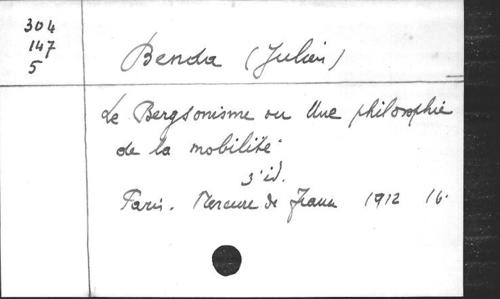 304
147
5
Benda (Julien)
Le Bergsonisme ou Une philosophie
de la mobilité.
3e éd.
Paris. Mercure de France 1912 16.